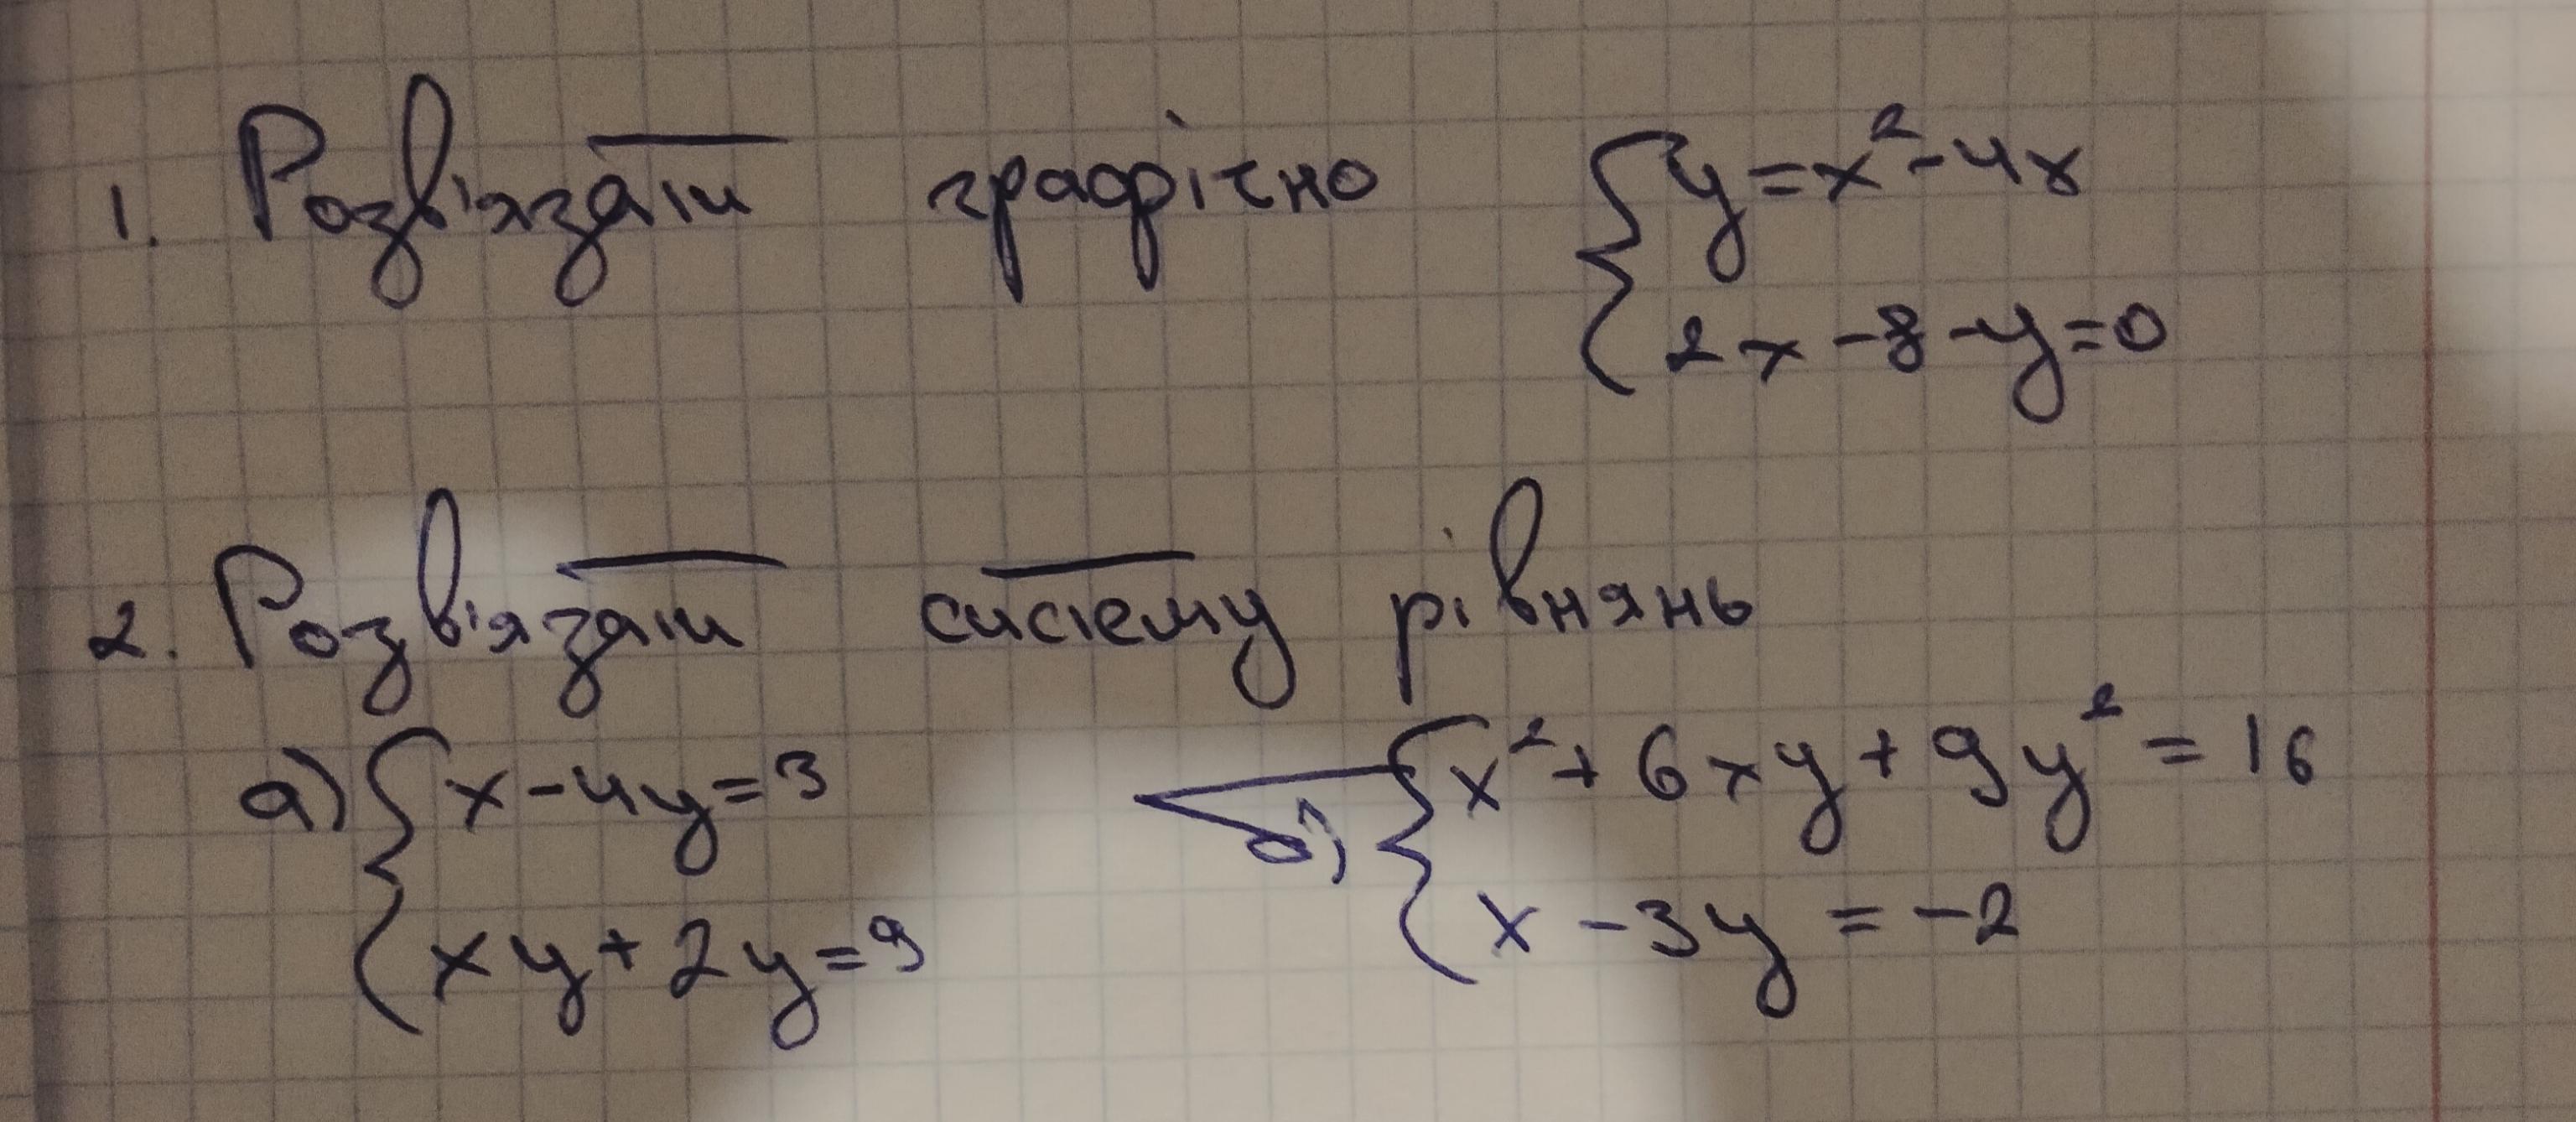 1. Розв'язати графічно { y = x² - 4x
2x - 8 - y = 0
2. Розв'язати систему рівнянь
а) { x - 4y = 3 б) { x² + 6xy + 9y² = 16
xy + 2y = 9 x - 3y = -2